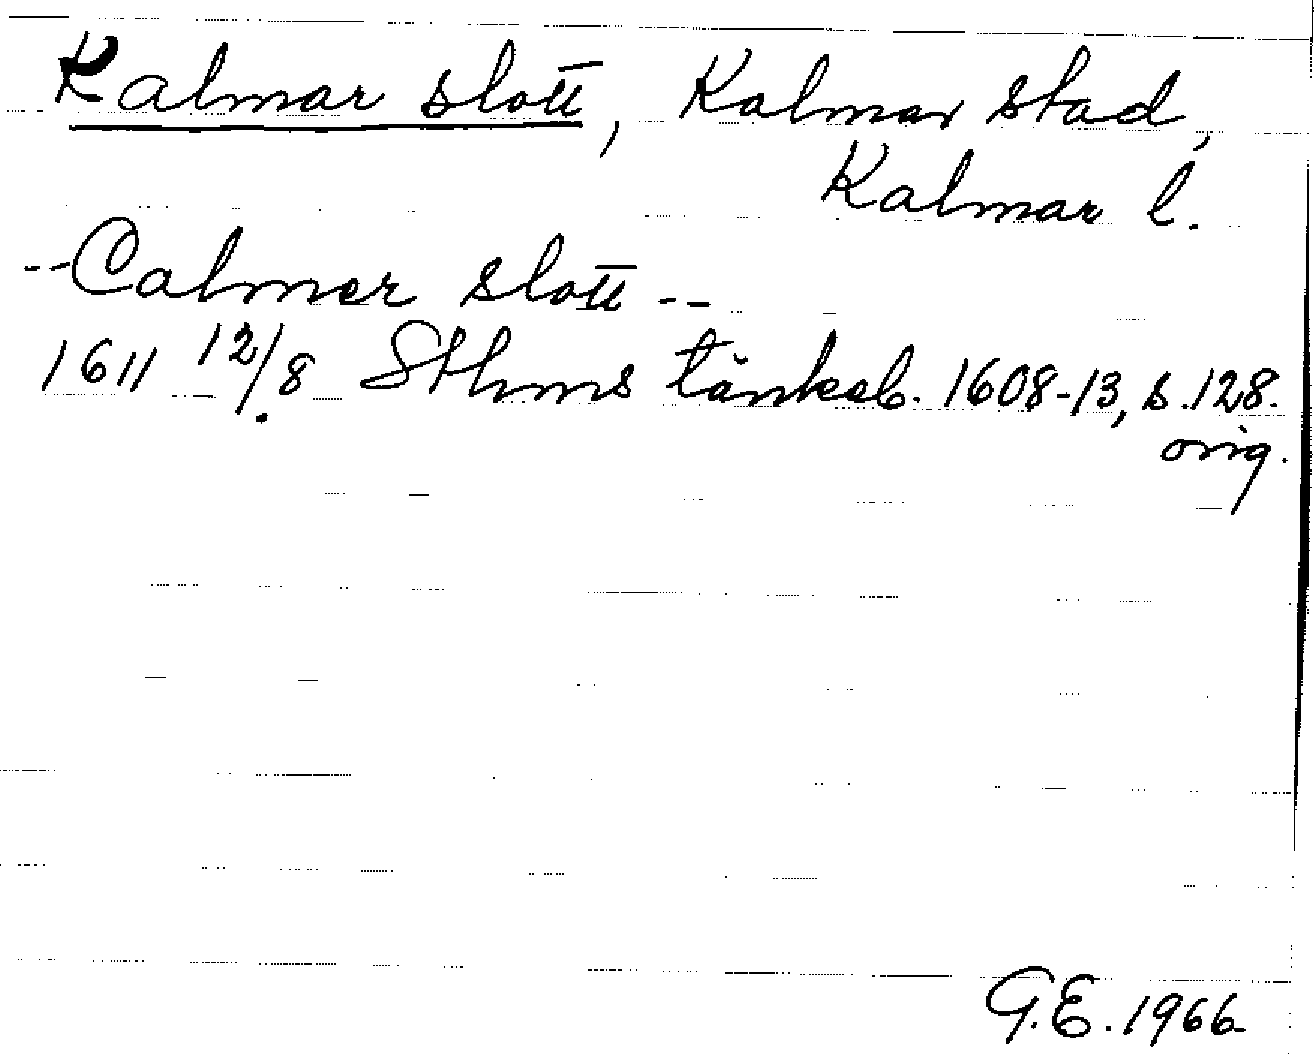 Kalmar slott, Kalmar stad,
Kalmar l.
--Calmer slott--
1611 12/8 Sthms tänkeb. 1608-13, s. 128.
orig.
G.E. 1966